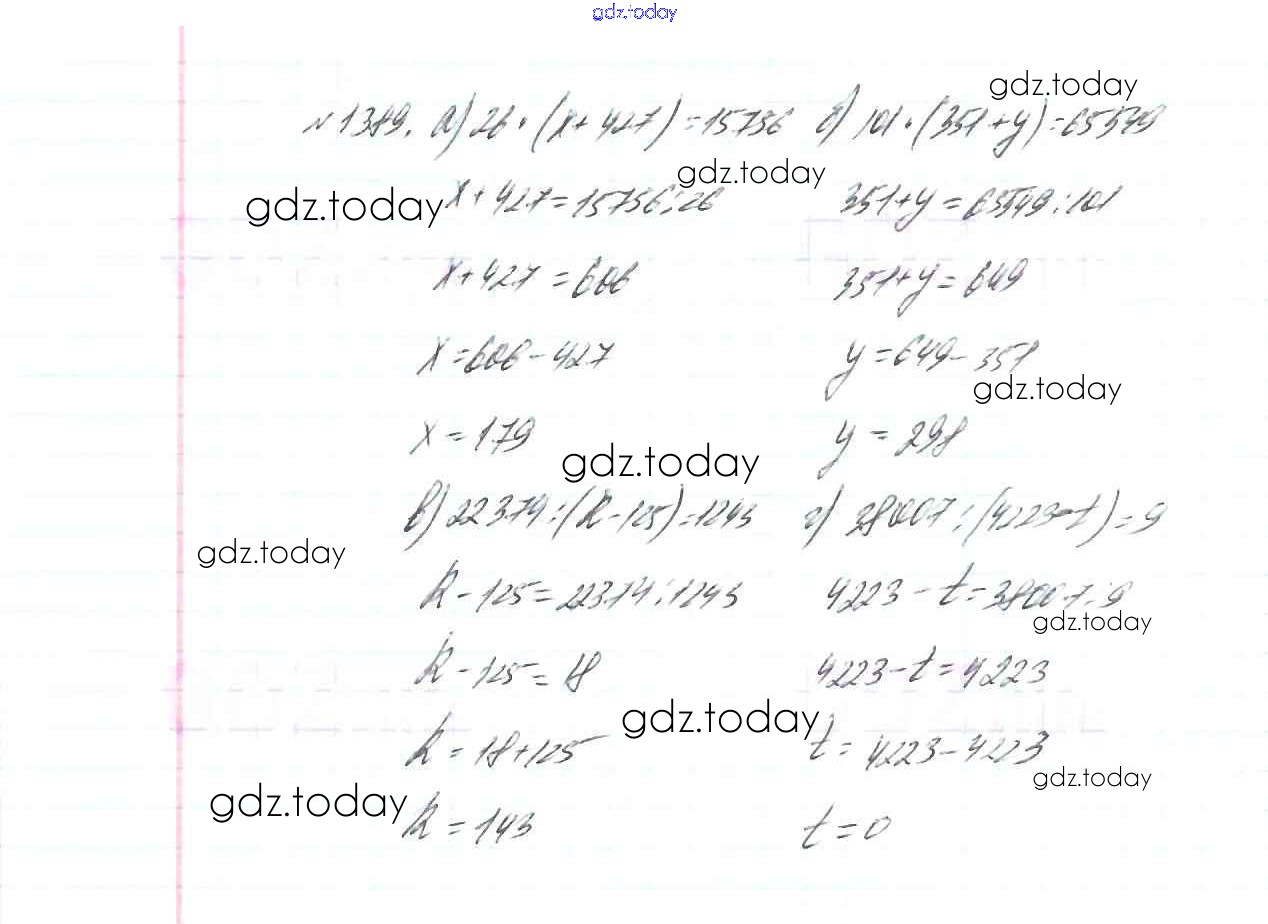 gdz.today
gdz.today
№1389. а) 26 · (x + 427) = 15756 б) 101 · (351 + y) = 65549
gdz.today
gdz.today x + 427 = 15756 : 26 351 + y = 65549 : 101
x + 427 = 606 351 + y = 649
x = 606 - 427 y = 649 - 351
gdz.today
x = 179 y = 298
gdz.today
в) 22374 : (k - 125) = 1243 г) 38007 : (4223 - t) = 9
gdz.today
k - 125 = 22374 : 1243 4223 - t = 38007 : 9
gdz.today
k - 125 = 18 4223 - t = 4223
gdz.today
k = 18 + 125 t = 4223 - 4223
gdz.today
gdz.today
k = 143 t = 0